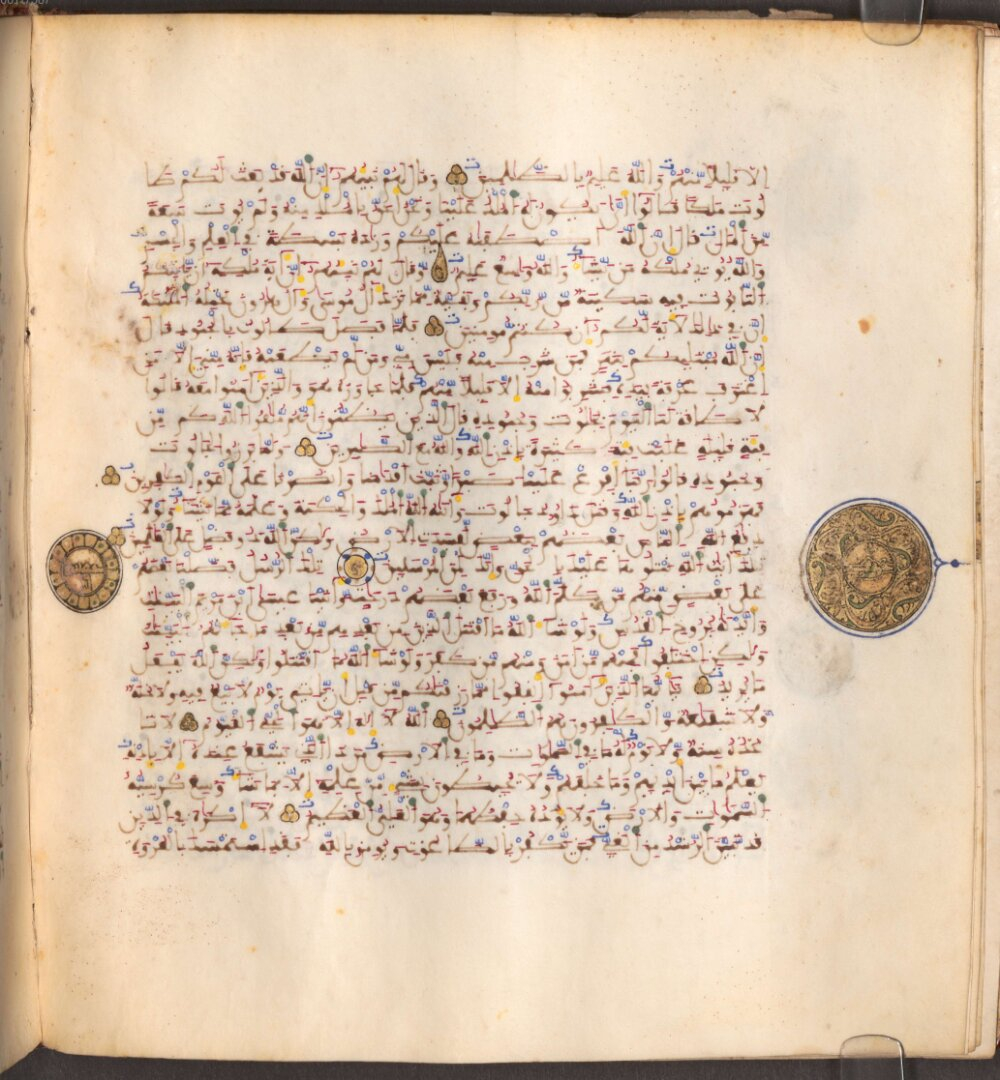 الا قليلا منهم والله عليم بالظلمين وقال لهم نبيهم ان الله قد بعث لكم طا
لوت ملكا قالوا انى يكون له الملك علينا ونحن احق بالملك منه ولم يوت سعة
من المال قال ان الله اصطفيه عليكم وزاده بسطة في العلم والجسم
والله يوتي ملكه من يشا والله وسع عليم وقال لهم نبيهم ان اية ملكه ان ياتيكم
التابوت فيه سكينة من ربكم وبقية مما ترك ال موسى وال هرون تحمله الملئكة
ان في ذلك لاية لكم ان كنتم مومنين فلما فصل طالوت بالجنود قال
ان الله مبتليكم بنهر فمن شرب منه فليس مني ومن لم يطعمه فانه مني الا من
اغترف غرفة بيده فشربوا منه الا قليلا منهم فلما جاوزه هو والذين امنوا معه قالوا
لا طاقة لنا اليوم بجالوت وجنوده قال الذين يظنون انهم ملقوا الله كم من
فية قليلة غلبت فية كثيرة باذن الله والله مع الصبرين ولما برزوا لجالوت
وجنوده قالوا ربنا افرغ علينا صبرا وثبت اقدامنا وانصرنا على القوم الكفرين
فهزموهم باذن الله وقتل داود جالوت واتيه الله الملك والحكمة وعلمه مما يشا ولولا
دفع الله الناس بعضهم ببعض لفسدت الارض ولكن الله ذو فضل على العلمين
تلك ايت الله نتلوها عليك بالحق وانك لمن المرسلين تلك الرسل فضلنا بعضهم
على بعض منهم من كلم الله ورفع بعضهم درجت واتينا عيسى ابن مريم البينت
وايدنه بروح القدس ولو شا الله ما اقتتل الذين من بعدهم من بعد ما جاتهم البينت
ولكن اختلفوا فمنهم من امن ومنهم من كفر ولو شا الله ما اقتتلوا ولكن الله يفعل
ما يريد يايها الذين امنوا انفقوا مما رزقنكم من قبل ان ياتي يوم لا بيع فيه ولا خلة
ولا شفعة والكفرون هم الظلمون الله لا اله الا هو الحي القيوم لا تا
خذه سنة ولا نوم له ما في السموت وما في الارض من ذا الذي يشفع عنده الا باذنه
يعلم ما بين ايديهم وما خلفهم ولا يحيطون بشي من علمه الا بما شا وسع كرسيه
السموت والارض ولا يوده حفظهما وهو العلي العظيم لا اكراه في الدين
قد تبين الرشد من الغي فمن يكفر بالطغوت ويومن بالله فقد استمسك بالعروة